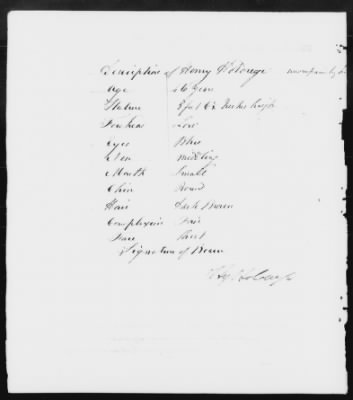 Description of Henry
Age Years
Stature 5 feet 6½ Inches high
Forehead Low
Eyes Blue
Nose middling
Mouth Small
Chin Round
Hair Dark Brown
Complexion Fair
Face Short
Signature of Bearer